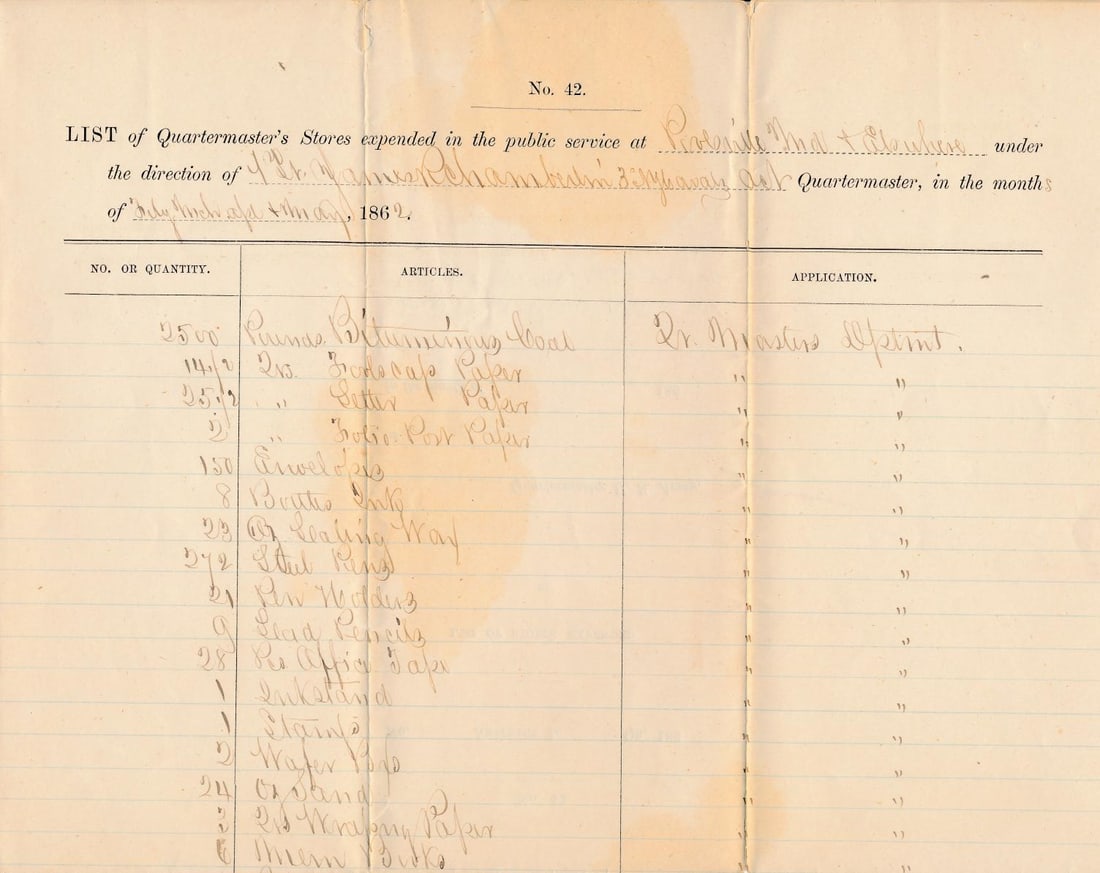 No. 42.
LIST of Quartermaster's Stores expended in the public service at Poolesville Md & Elsewhere under
the direction of 1st Lt. James R Chamberlin 3 NY Cavaly Act Quartermaster, in the months
of Feby Mch Apl & May, 1862.
NO. OR QUANTITY. ARTICLES. APPLICATION.
2500 Pounds Bituminous Coal Qr. Masters Dptmt.
14 1/2 Qrs. Foolscap Paper " "
25 1/2 " Letter Paper " "
2 " Folio Post Paper " "
150 Envelopes " "
8 Bottles Ink " "
23 Oz Sealing Wax " "
272 Steel Pens " "
21 Pen Holders " "
9 Lead Pencils " "
28 Pcs Office Tape " "
1 Inkstand " "
1 Stamps " "
2 Wafer " "
24 Oz Sand " "
3 Qrs Wrapping Paper " "
6 Mem Books " "